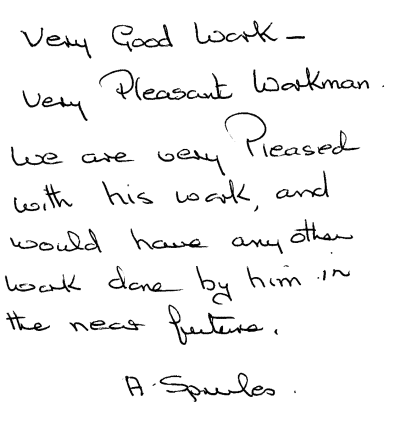 Very Good Work –
Very Pleasant Workman.
We are very Pleased
with his work, and
would have any other
work done by him in
the near future.
A.